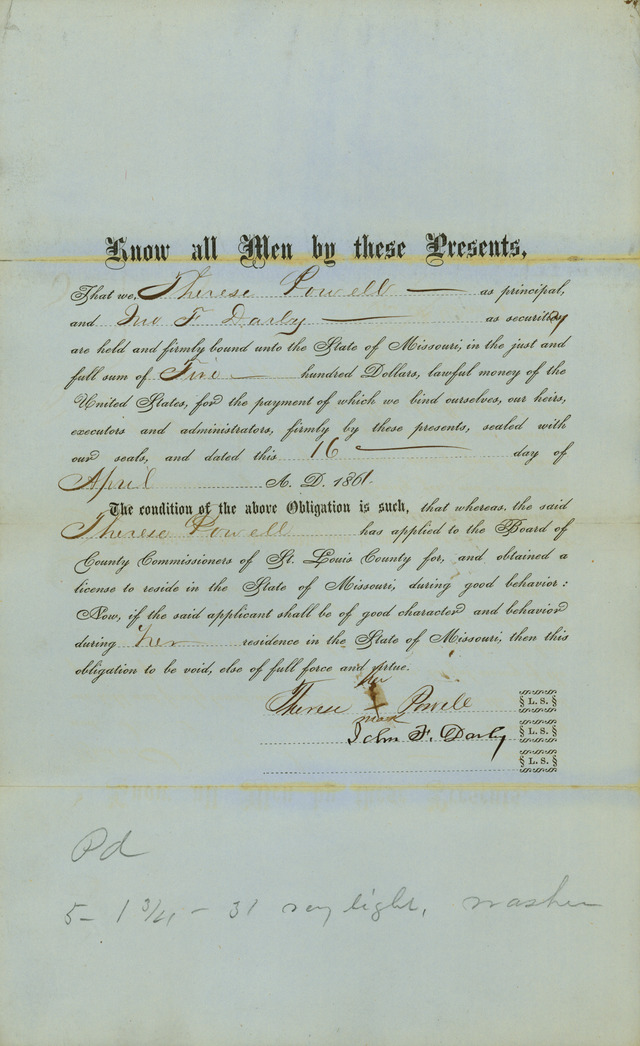 Know all Men by these Presents,
That we, Therese Powell as principal,
and Jno F Darby as security
are held and firmly bound unto the State of Missouri, in the just and
full sum of Five hundred Dollars, lawful money of the
United States, for the payment of which we bind ourselves, our heirs,
executors and administrators, firmly by these presents, sealed with
our seals, and dated this 16 day of
April A. D. 1861.
The condition of the above Obligation is such, that whereas, the said
Therese Powell has applied to the Board of
County Commissioners of St. Louis County for, and obtained a
license to reside in the State of Missouri, during good behavior:
Now, if the said applicant shall be of good character and behavior
during her residence in the State of Missouri, then this
obligation to be void, else of full force and virtue.
her
Therese X Powell § L. S. §
mark
John F. Darby § L. S. §
§ L. S. §
Pd
5- 1 3/4 - 31 light, washer